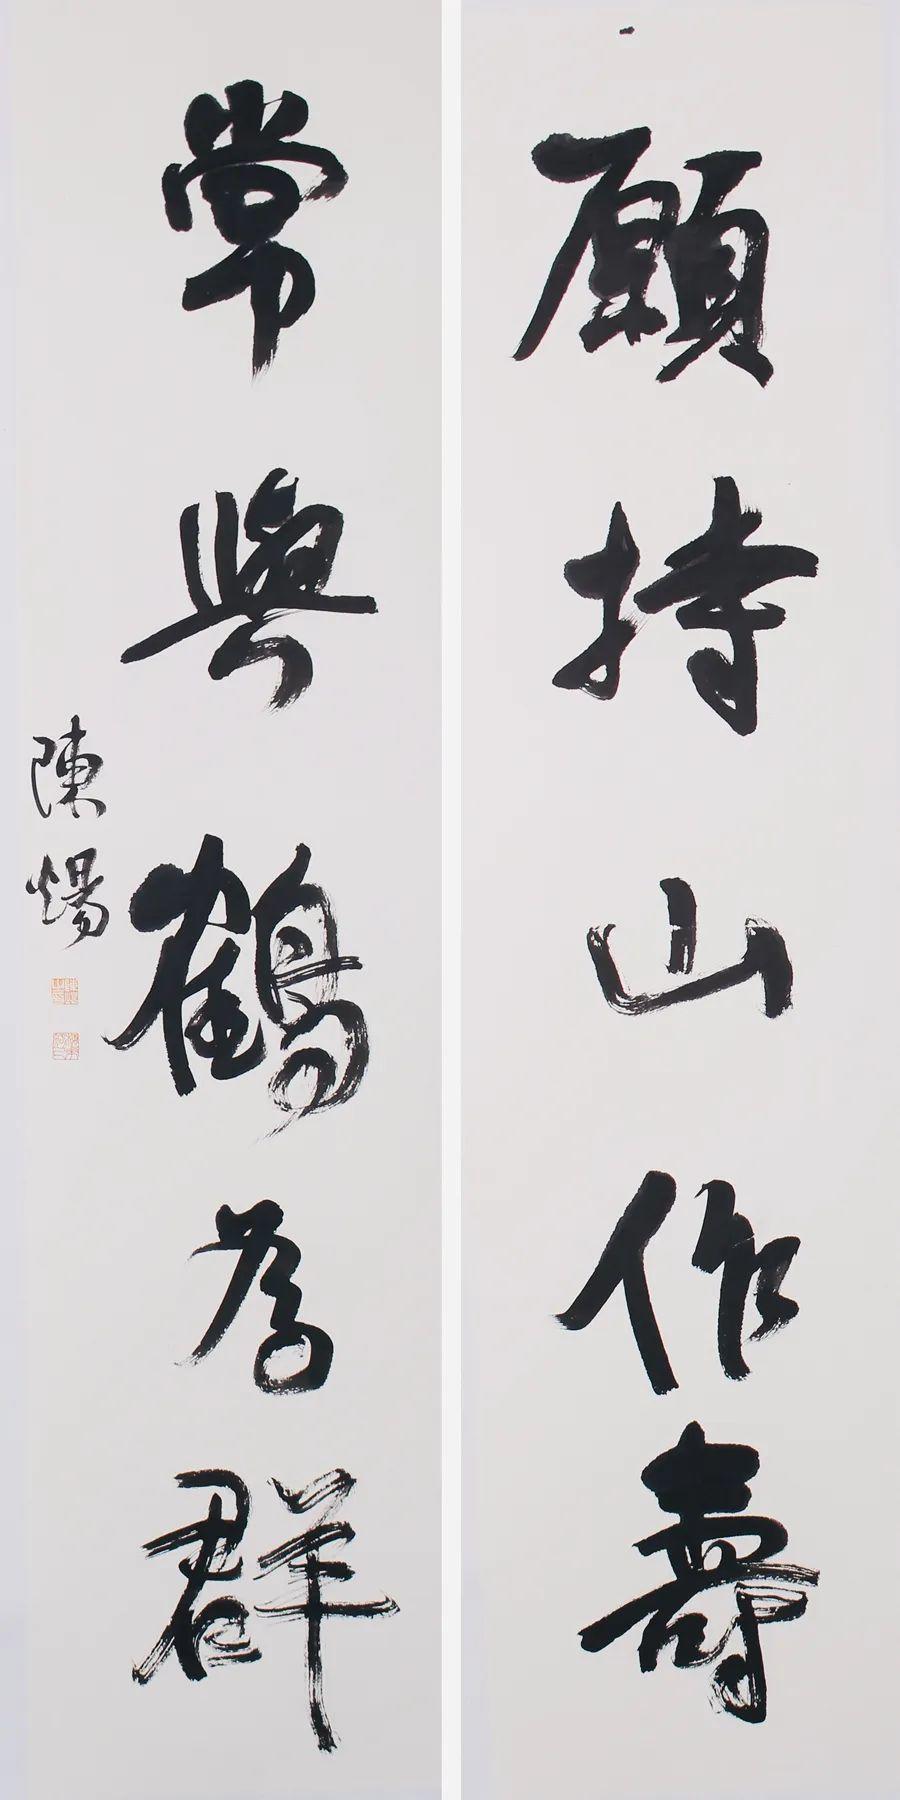 願持山作壽
常與鶴為群
陳煬